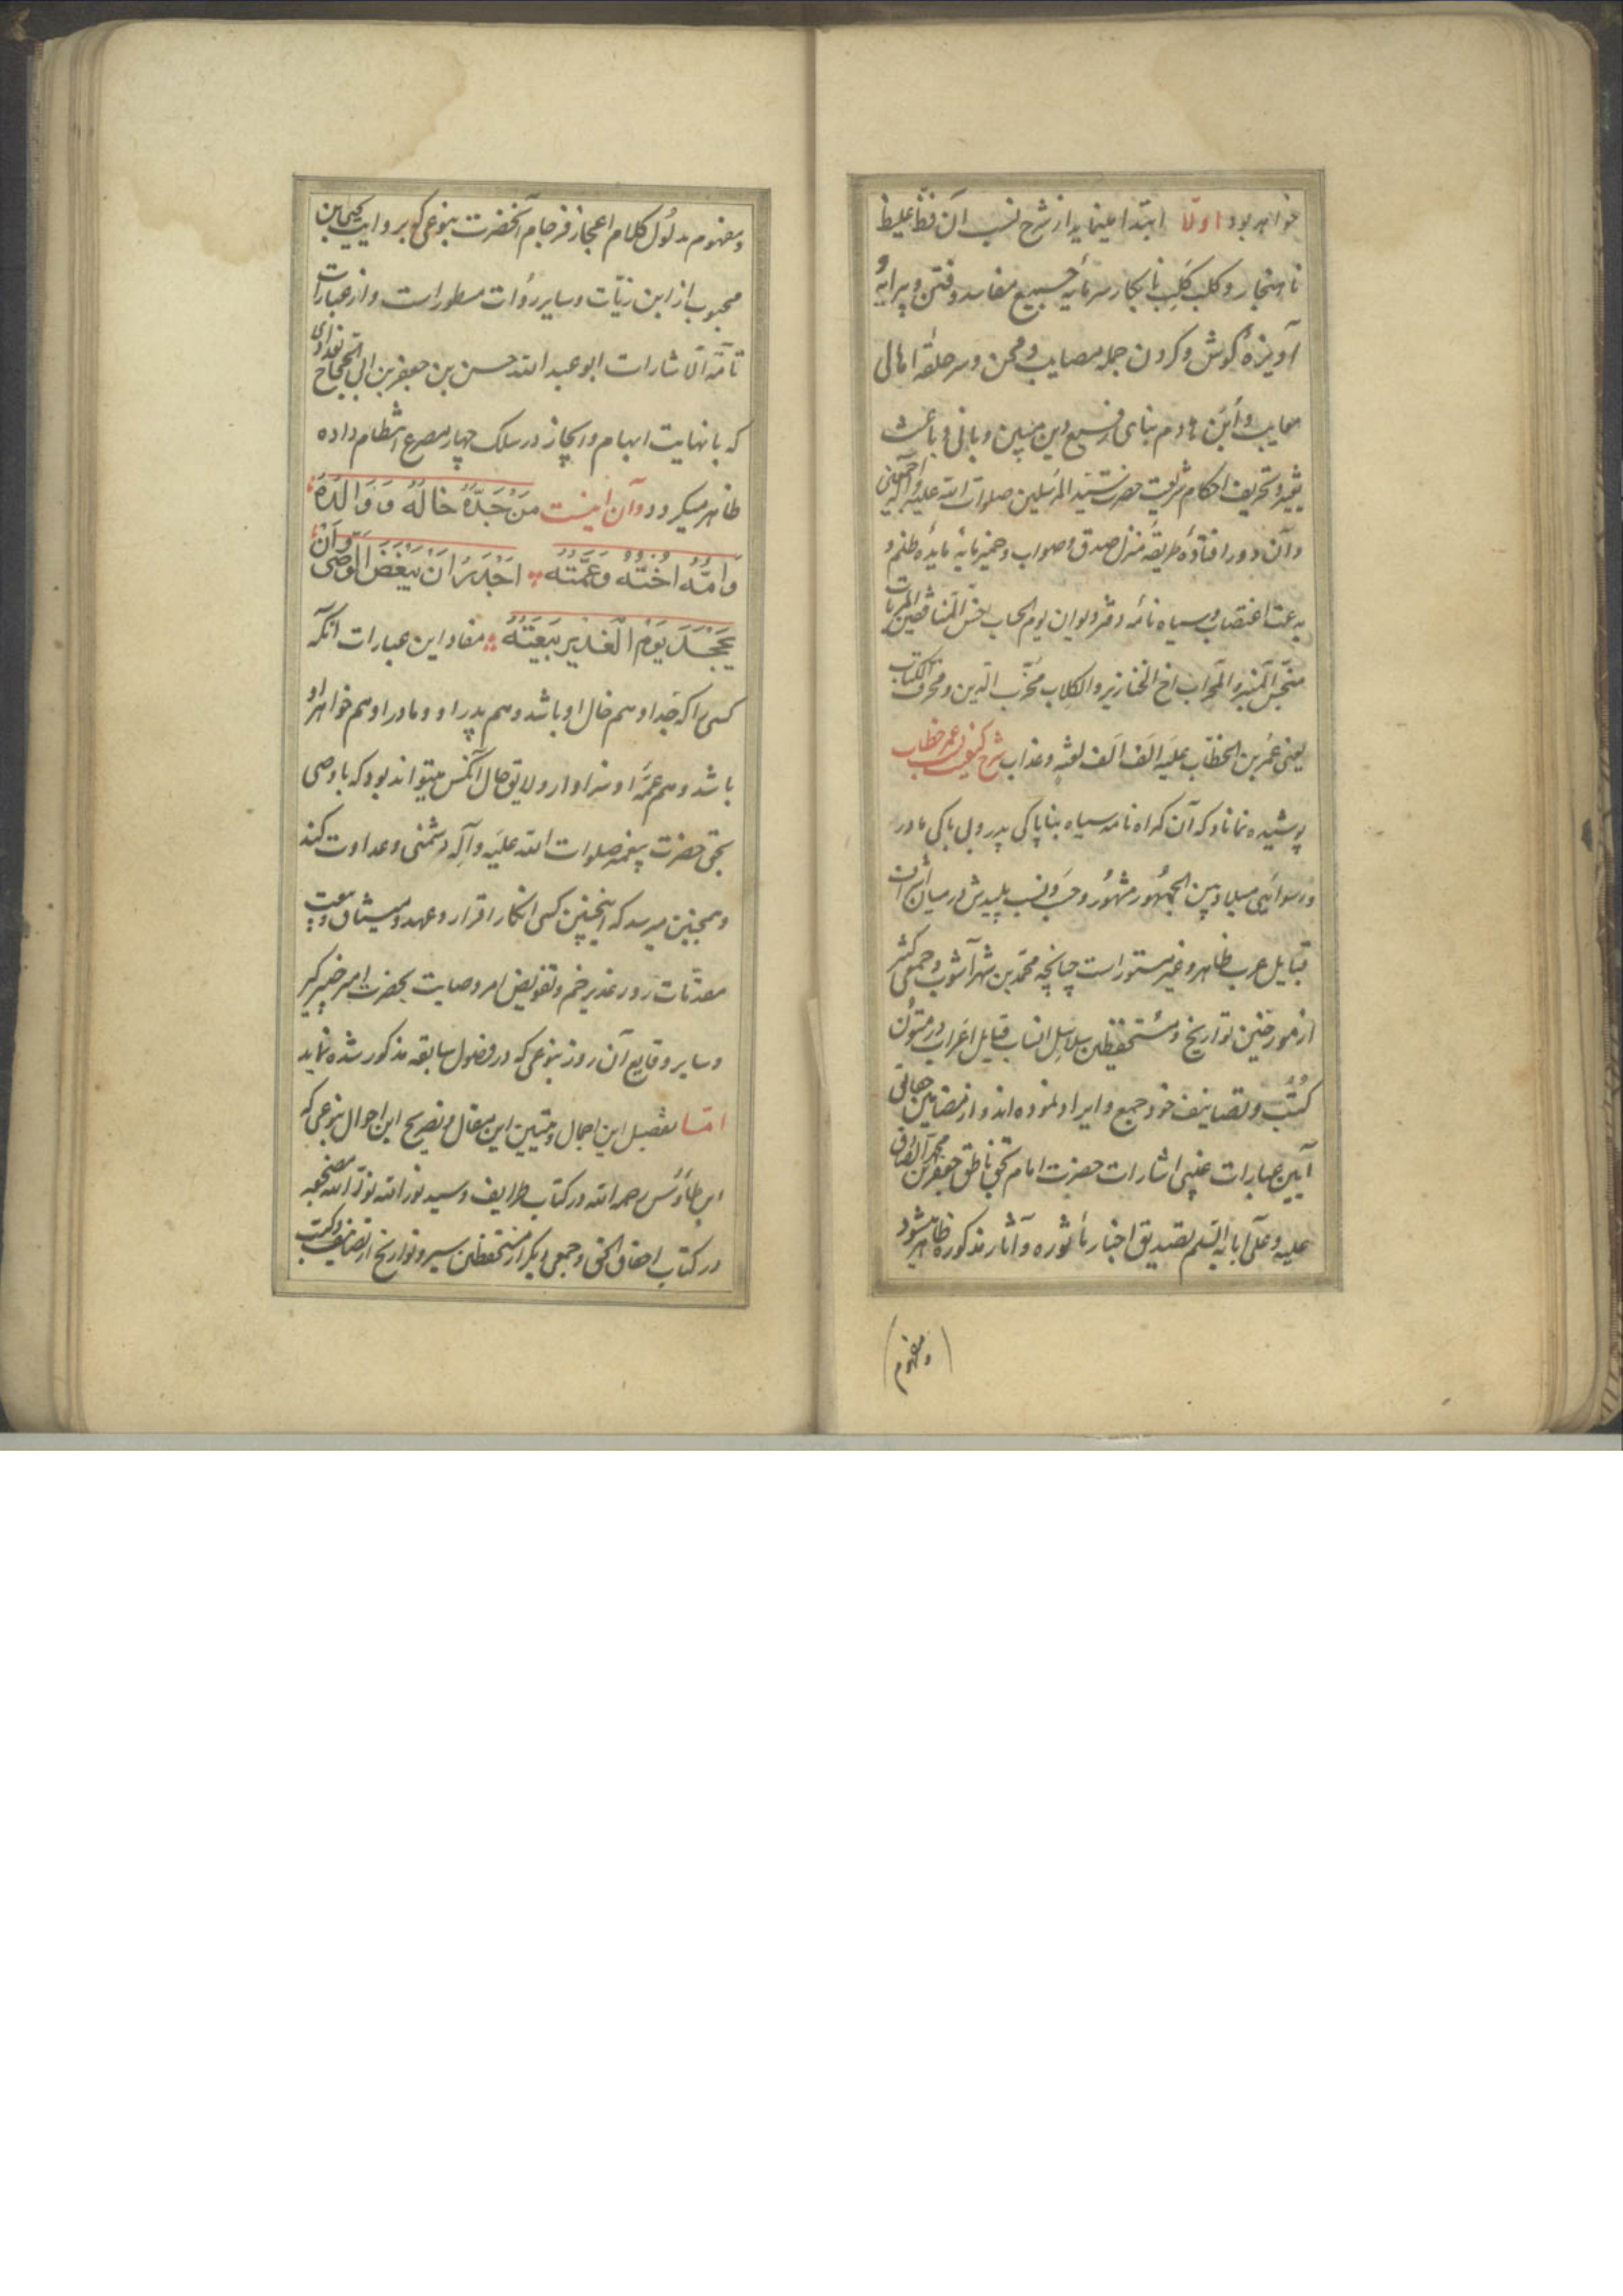 خواهد بود اولا ابتدا مینماید از شرح نسب آن فظّ غلیظ
ناهنجار و کلب کَلِب نابکار سرمایه جمیع مفاسد و فتن و پیرایهٔ
آویزهٔ گوش و گردن جمله مصایب و محن و سر حلقهٔ اهالی
معایب و هادم بنای رفیع دین مبین و بانی و باعث
تغییر و تحریف احکام شریعت حضرت سیّد المرسلین صلوات الله علیه و آله اجمعین
و آن دور افتادهٔ طریقه منزل صدق و صواب و خمیر مایهٔ مایدهٔ ظلم و
بدعت اغتصاب و سیاه نامه دفتر و دیوان یوم الحساب
منجّس المنبر و المحراب اخ الخنازیر و الکلاب مخرّب الدین و محرّف الکتاب
یعنی عمر بن الخطّاب علیه الف الف لعنة و عذاب شرح کیفیت نسب عمر خطاب
پوشیده نماناد که آن گمراه نامه سیاه بناپاکی پدر و بی باکی مادر
و رسوائی میلاد بین الجمهور مشهور و حسب و نسب پلیدش در میان
قبایل عرب ظاهر و غیر مستور است چنانچه محمّد بن شهر آشوب و جمعی کثیر
از مورّخین تواریخ و مستحفظین سلاسل انساب قبایل اعراب در متون
کتب و تصانیف خود جمع و ایراد نموده اند و از مضامین حقانی
آیین عبارات غیبی اشارات حضرت امام بحق ناطق جعفر بن محمد الصادق
علیه و علی آبائه السّلم تصدیق اخبار مأثوره و آثار مذکوره ظاهر میشود
و مفهوم
و مفهوم مدلول کلام اعجاز فرجام آنحضرت بنوعی که بروایت یحیی بن
محبوب از ابن زیّات و سایر روات مسطور است و از عبارات
تامّة الاشارات ابو عبد الله حسن بن جعفر بن ابی الحجاج بغدادی
که با نهایت ابهام و ایجاز در سلک چهار مصرع انتظام داده
ظاهر میگردد و آن اینست مَنْ جَدُّهُ خالُهُ وَ وَالِدُهُ
وَ اُمُّهُ اُخْتُهُ وَ عَمَّتُهُ اَجْدَرُ اَنْ یَبْغَضَ الْوَصِیَّ وَ اَنْ
یَجْحَدَ یَوْمَ الْغَدِیرِ بَیْعَتَهُ مفاد این عبارات آنکه
کسی را که جد او هم خال او باشد و هم پدر او و مادر او هم خواهر او
باشد و هم عمّهٔ او سزاوار و لایق حال آنکس میتواند بود که با وصی
بحق حضرت پیغمبر صلوات الله علیه و آله دشمنی و عداوت کند
و همچنین میرسد که اینچنین کسی انکار اقرار و عهد و میثاق و بیعت
مقدّمات روز غدیر خم و تفویض امر وصایت بحضرت امیر خیبر گیر
و سایر وقایع آن روز بنوعی که در فصول سابقه مذکور شده نماید
امّا تفصیل این اجمال و تبیین این مقال و تصریح این احوال بنوعی که
ابن طاوس رحمه الله در کتاب طرایف و سید نور الله نوّر الله مضجعه
در کتاب احقاق الحق و جمعی دیگر از مستحفظین سیر و تواریخ از تصانیف و کتب